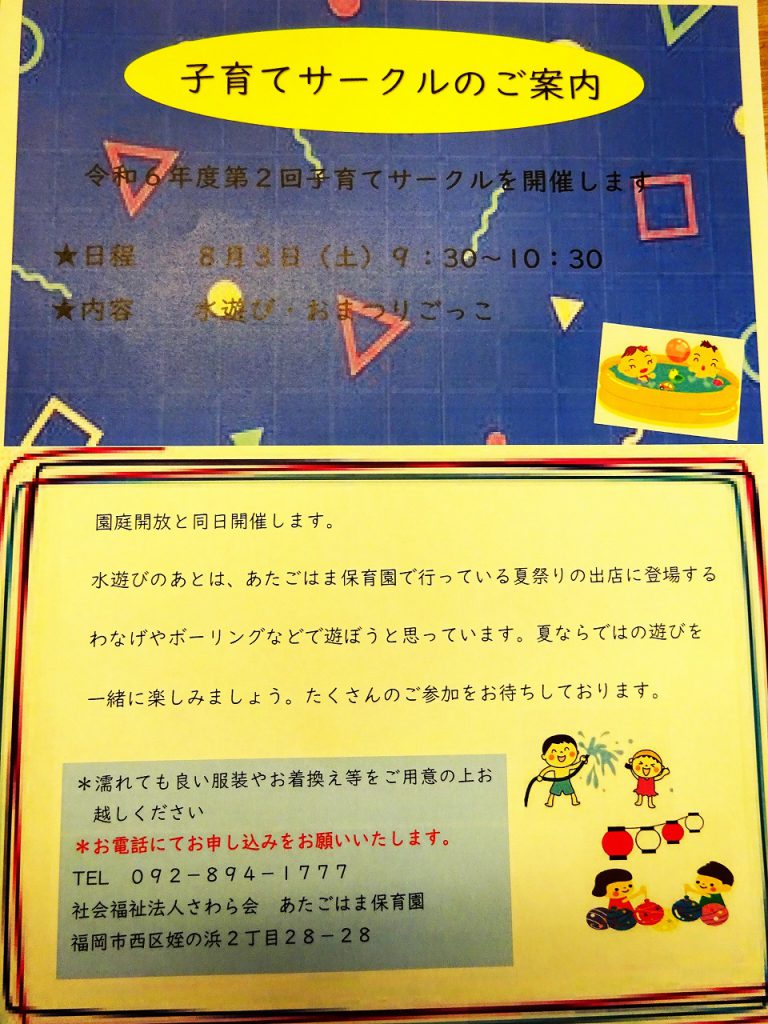 子育てサークルのご案内
令和6年度第2回子育てサークルを開催します
★日程　　8月3日（土）9：30～10：30
★内容　　水遊び・おまつりごっこ
園庭開放と同日開催します。
水遊びのあとは、あたごはま保育園で行っている夏祭りの出店に登場する
わなげやボーリングなどで遊ぼうと思っています。夏ならではの遊びを
一緒に楽しみましょう。たくさんのご参加をお待ちしております。
＊濡れても良い服装やお着換え等をご用意の上お
越しください
＊お電話にてお申し込みをお願いいたします。
TEL　092－894－1777
社会福祉法人さわら会　あたごはま保育園
福岡市西区姪の浜2丁目28－28